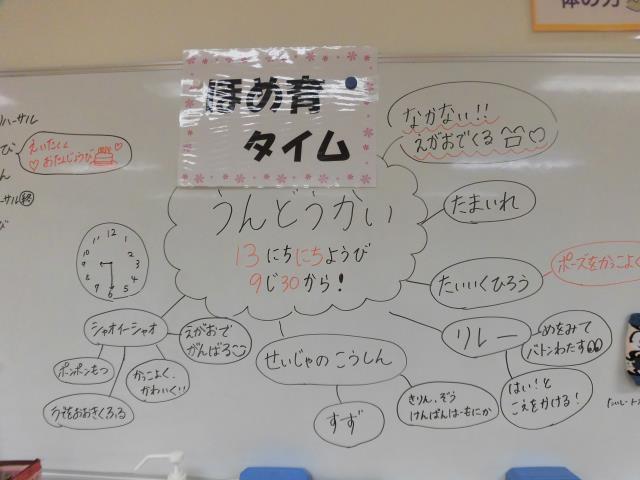 体の力
ほめ育
タイム
リハーサル
えいたくん
おたんじょうび
ーサル終
なかない!!
えがおでくる
うんどうかい
13にちにちようび
9じ30から!
11 12 1
10 2
9 3
8 4
7 6 5
たまいれ
たいいくひろう
ポーズをかっこよく
リレー
めをみて
バトンわたす
はい!と
こえをかける!
シャオイーシャオ
えがおで
がんばる
ポンポンもつ
かっこよく、
かわいく!!
せいじゃのこうしん
すず
きりん、ぞう
けんばんはーもにか